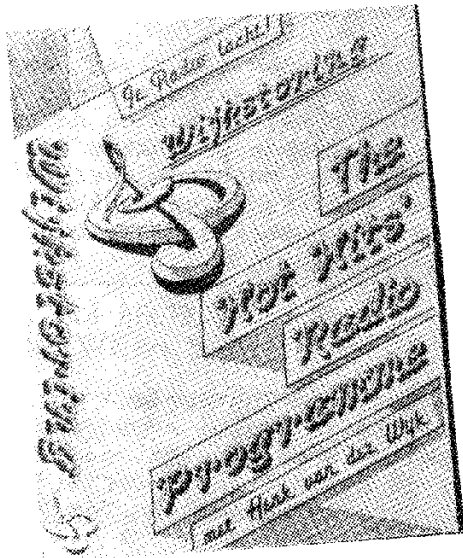 Radio lacht!
Wijkstoring
The
Hot Hits'
Radio
programma
met Henk van der Wijk
Wijkstoring